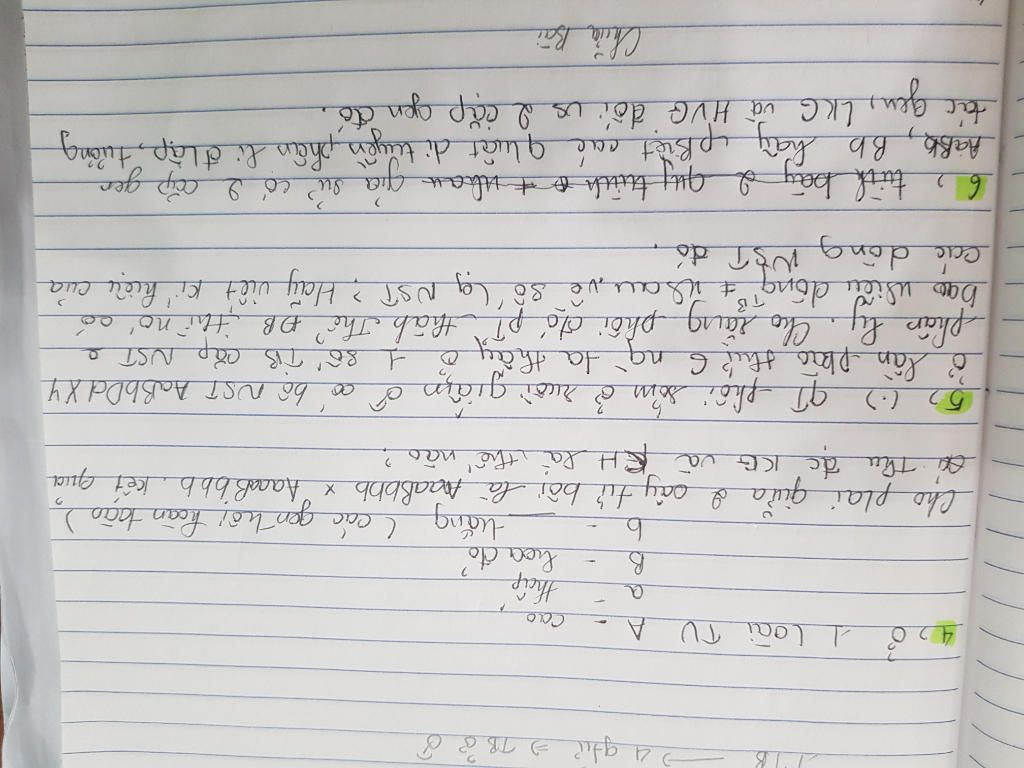 1TB → 4 gtử → TB ở ♂
4, Ở 1 loài TV A - cao
a - thấp
B - hoa đỏ
b - —— trắng (các gen trội hoàn toàn)
Cho plai giữa 2 cây tứ bội là AaaaBbbb × AaaaBbbb. kết quả
thu đc KG và KH là thế nào?
5, (.) qT phôi sớm ở ruồi giấm ♂ có bộ NST AaBbDdXY
ở lần pbào thứ 6 ng ta thấy ở 1 số TB cặp NST
phân ly. Cho rằng phôi đó pT thành thể ĐB thì nó có
bao nhiêu dòng TB ≠ nhau về số lg NST? Hãy viết kí hiệu của
các dòng NST đó.
6, trình bày 2 quy trình ≠ nhau giả sử có 2 cặp gen
AaBb, Bb hãy pbiệt các quluật di truyền phân li đlập, tương
tác gen, LKG và HVG đối vs 2 cặp gen đó.
Chữa Bài